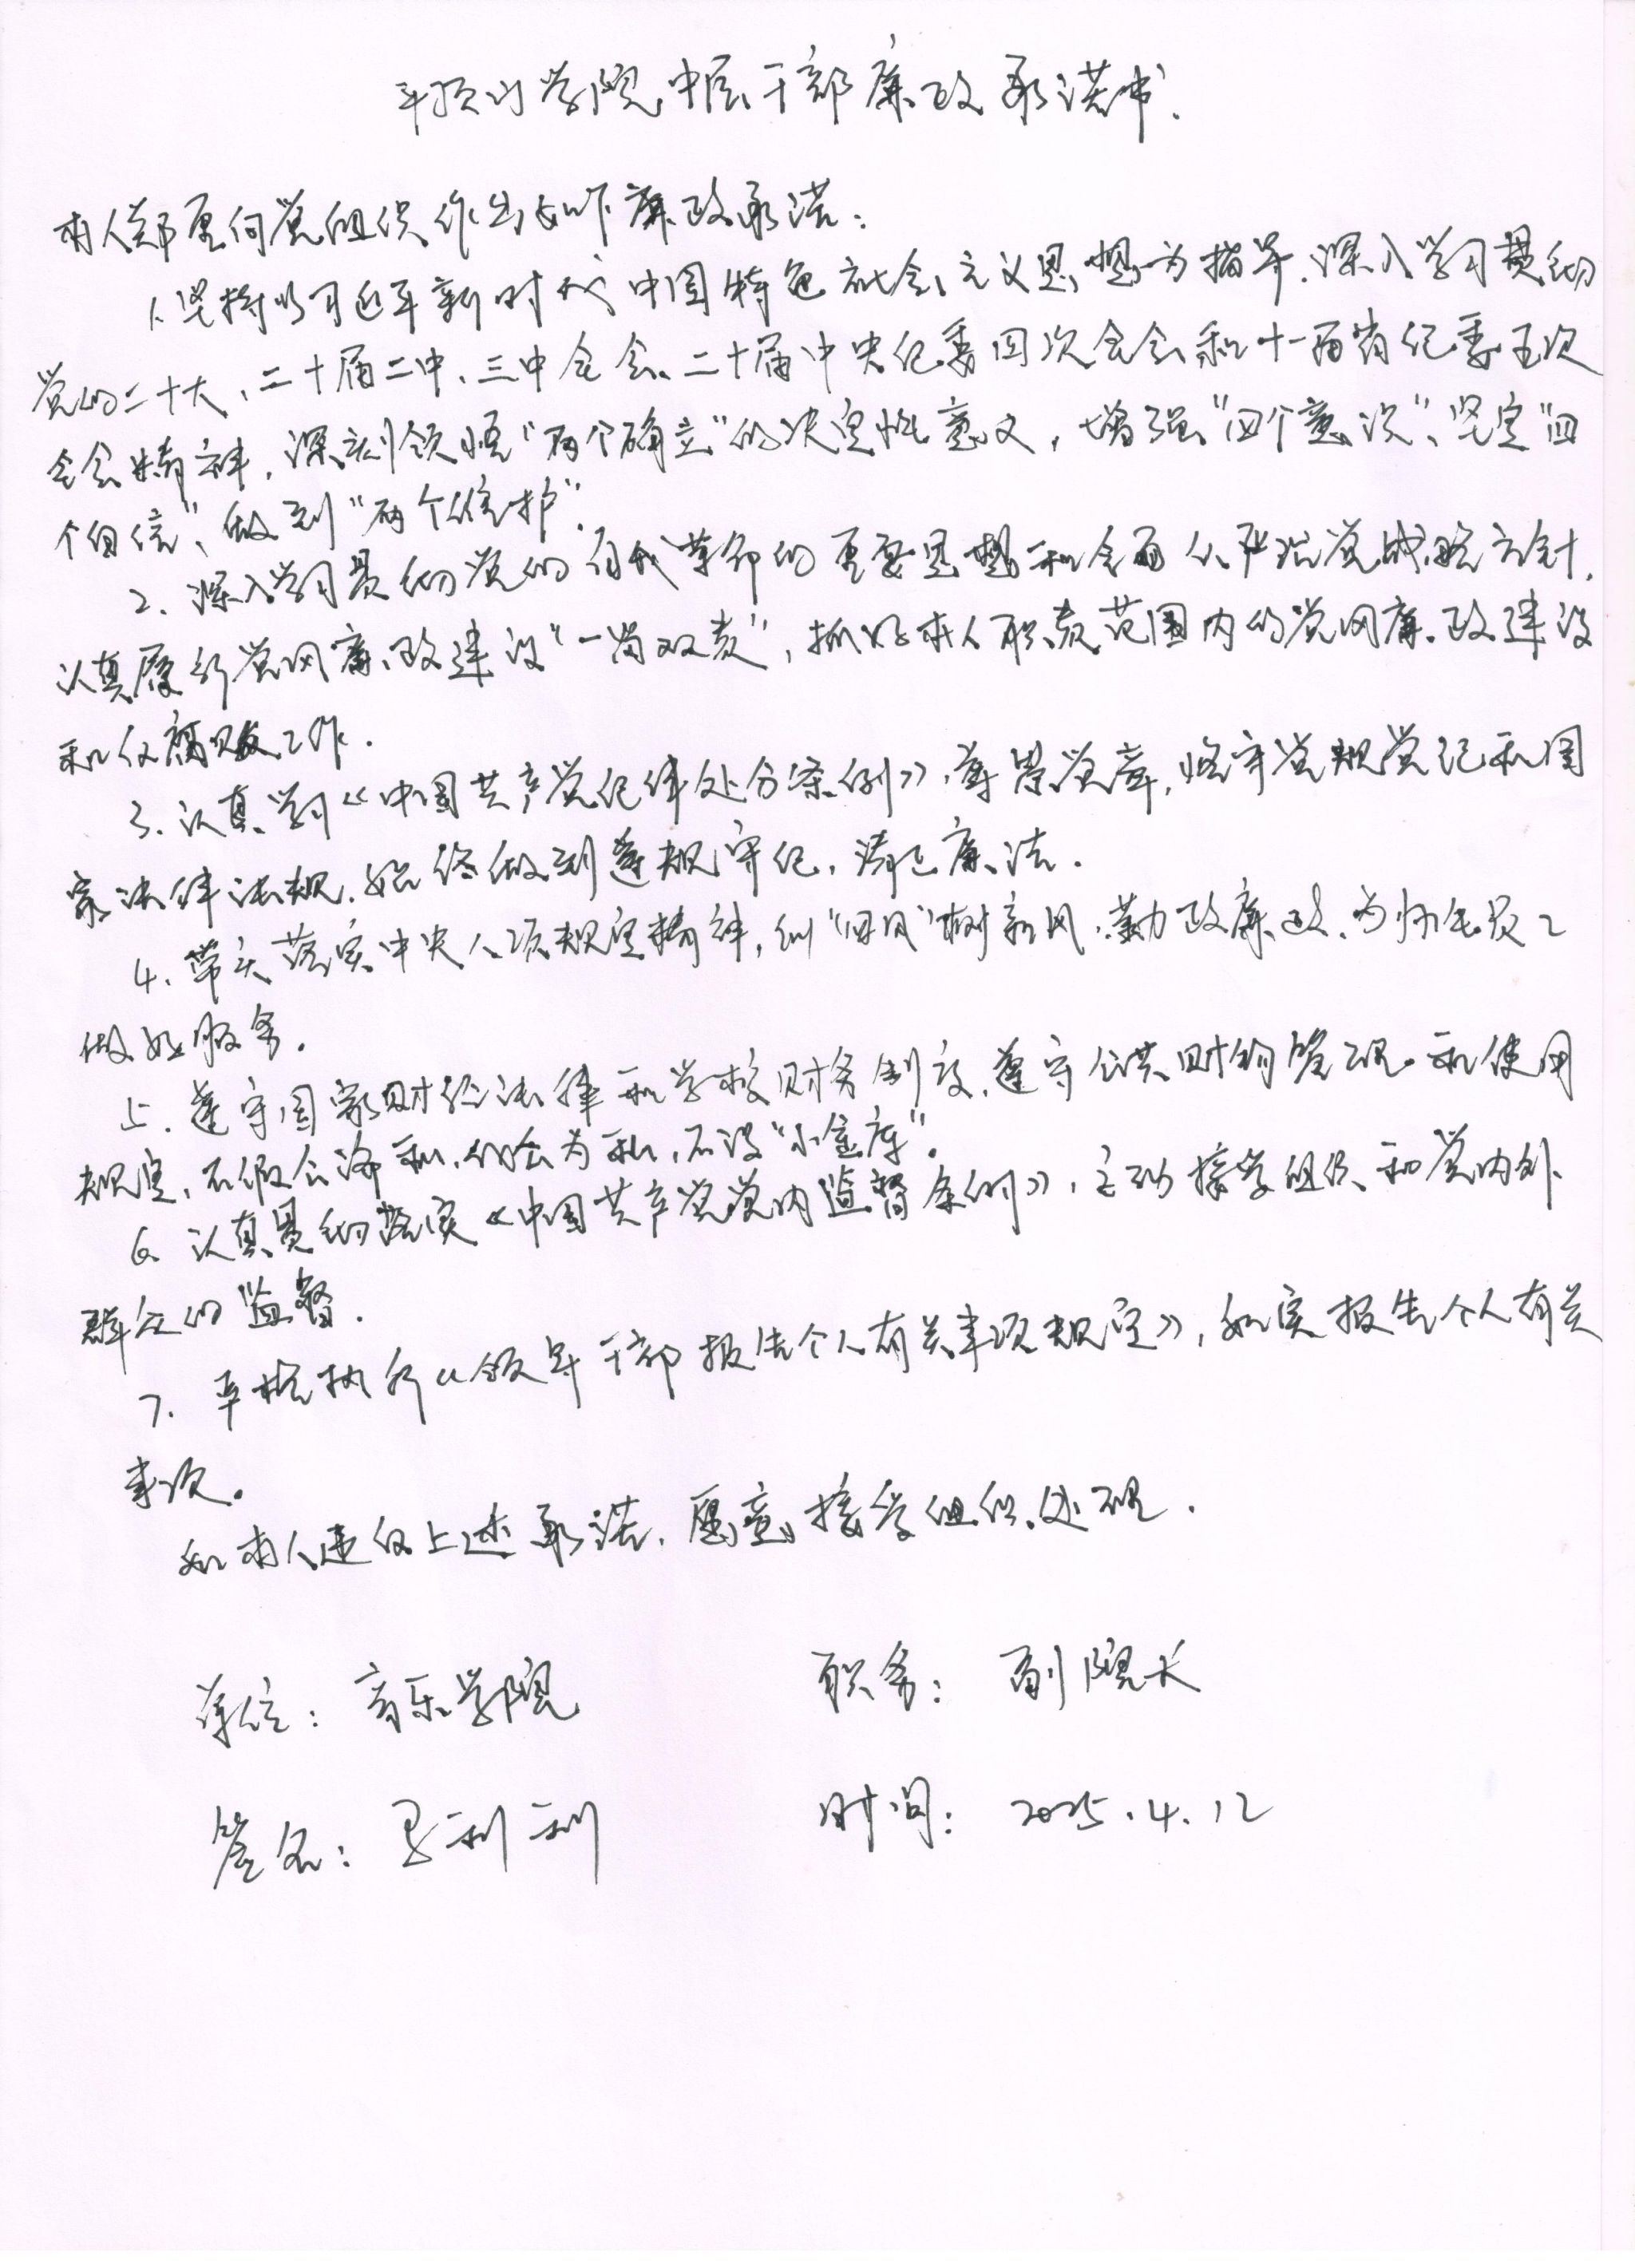 平顶山学院中层干部廉政承诺书.
本人郑重向党组织作出如下廉政承诺：
1、坚持以习近平新时代中国特色社会主义思想为指导.深入学习贯彻
党的二十大、二十届二中、三中全会、二十届中央纪委四次全会和十一届省纪委五次
全会精神，深刻领悟“两个确立”的决定性意义，增强“四个意识”、坚定“四
个自信”、做到“两个维护”.
2、深入学习贯彻党的自我革命的重要思想和全面从严治党战略方针，
认真履行党风廉政建设“一岗双责”，抓好本人职责范围内的党风廉政建设
和反腐败工作.
3、认真学习《中国共产党纪律处分条例》，尊崇党章，恪守党规党纪和国
家法律法规，始终做到遵规守纪，清正廉洁.
4、带头落实中央八项规定精神，纠“四风”树新风，勤政廉政，为师生员工
做好服务.
5、遵守国家财经法律和学校财务制度，遵守公共财物管理和使用
规定，不假公济私，化公为私，不设“小金库”。
6、认真贯彻落实《中国共产党党内监督条例》，主动接受组织和党内外
群众的监督.
7、严格执行《领导干部报告个人有关事项规定》，如实报告个人有关
事项。
如本人违反上述承诺，愿意接受组织处理.
单位：音乐学院 职务：副院长
签名：利利 时间：2025.4.12